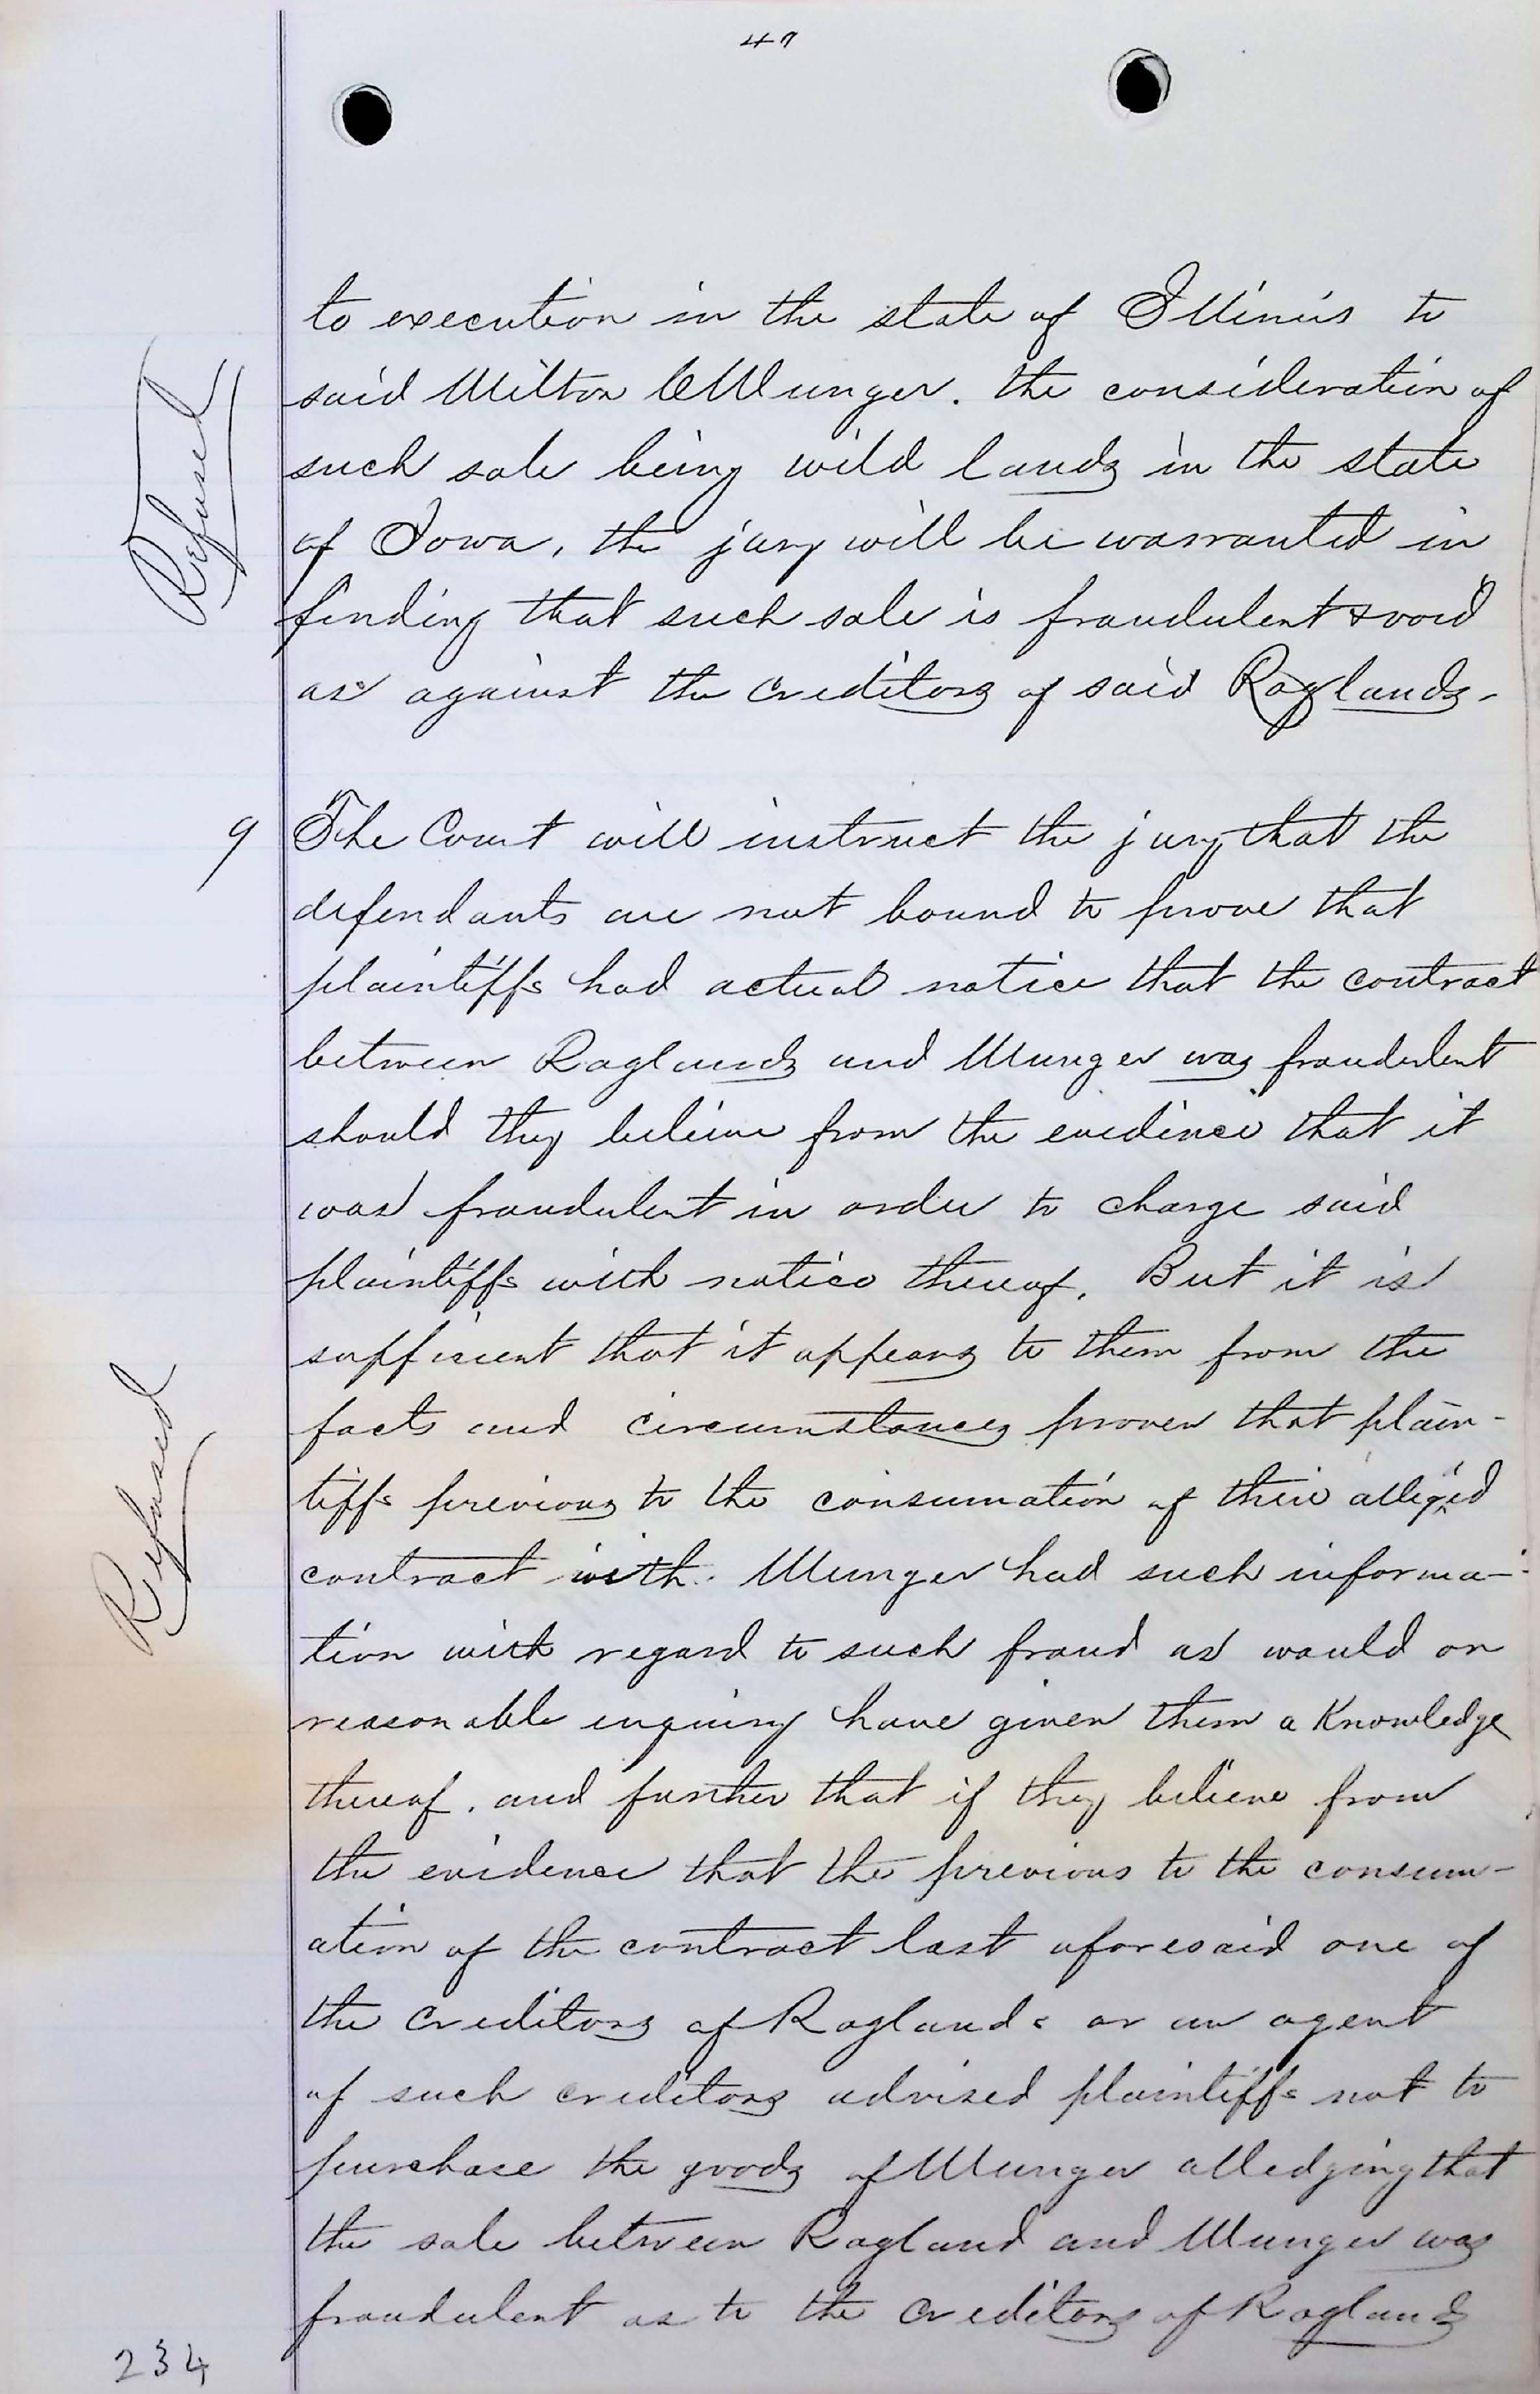 47
to execution in the state of Illinois to
said Milton C Munger. the consideration of
such sale being wild lands in the state
of Iowa, the jury will be warranted in
finding that such sale is fraudulent & void
as against the creditors of said Raglands.
Refused
9 The Court will instruct the jury that the
defendants are not bound to prove that
plaintiffs had actual notice that the contract
between Raglands and Munger was fraudulent
should they believe from the evidence that it
was fraudulent in order to charge said
plaintiffs with notice thereof. But it is
sufficient that it appears to them from the
facts and circumstances proven that plain-
tiffs previous to the consumation of their alleged
contract with Munger had such informa-
tion with regard to such fraud as would on
reasonable inquiry have given them a Knowledge
thereof. and further that if they believe from
the evidence that the previous to the consum-
ation of the contract last aforesaid one of
the creditors of Raglands or an agent
of such creditors advised plaintiffs not to
purchase the goods of Munger alledging that
the sale between Ragland and Munger was
fraudulent as to the creditors of Raglands
Refused
234